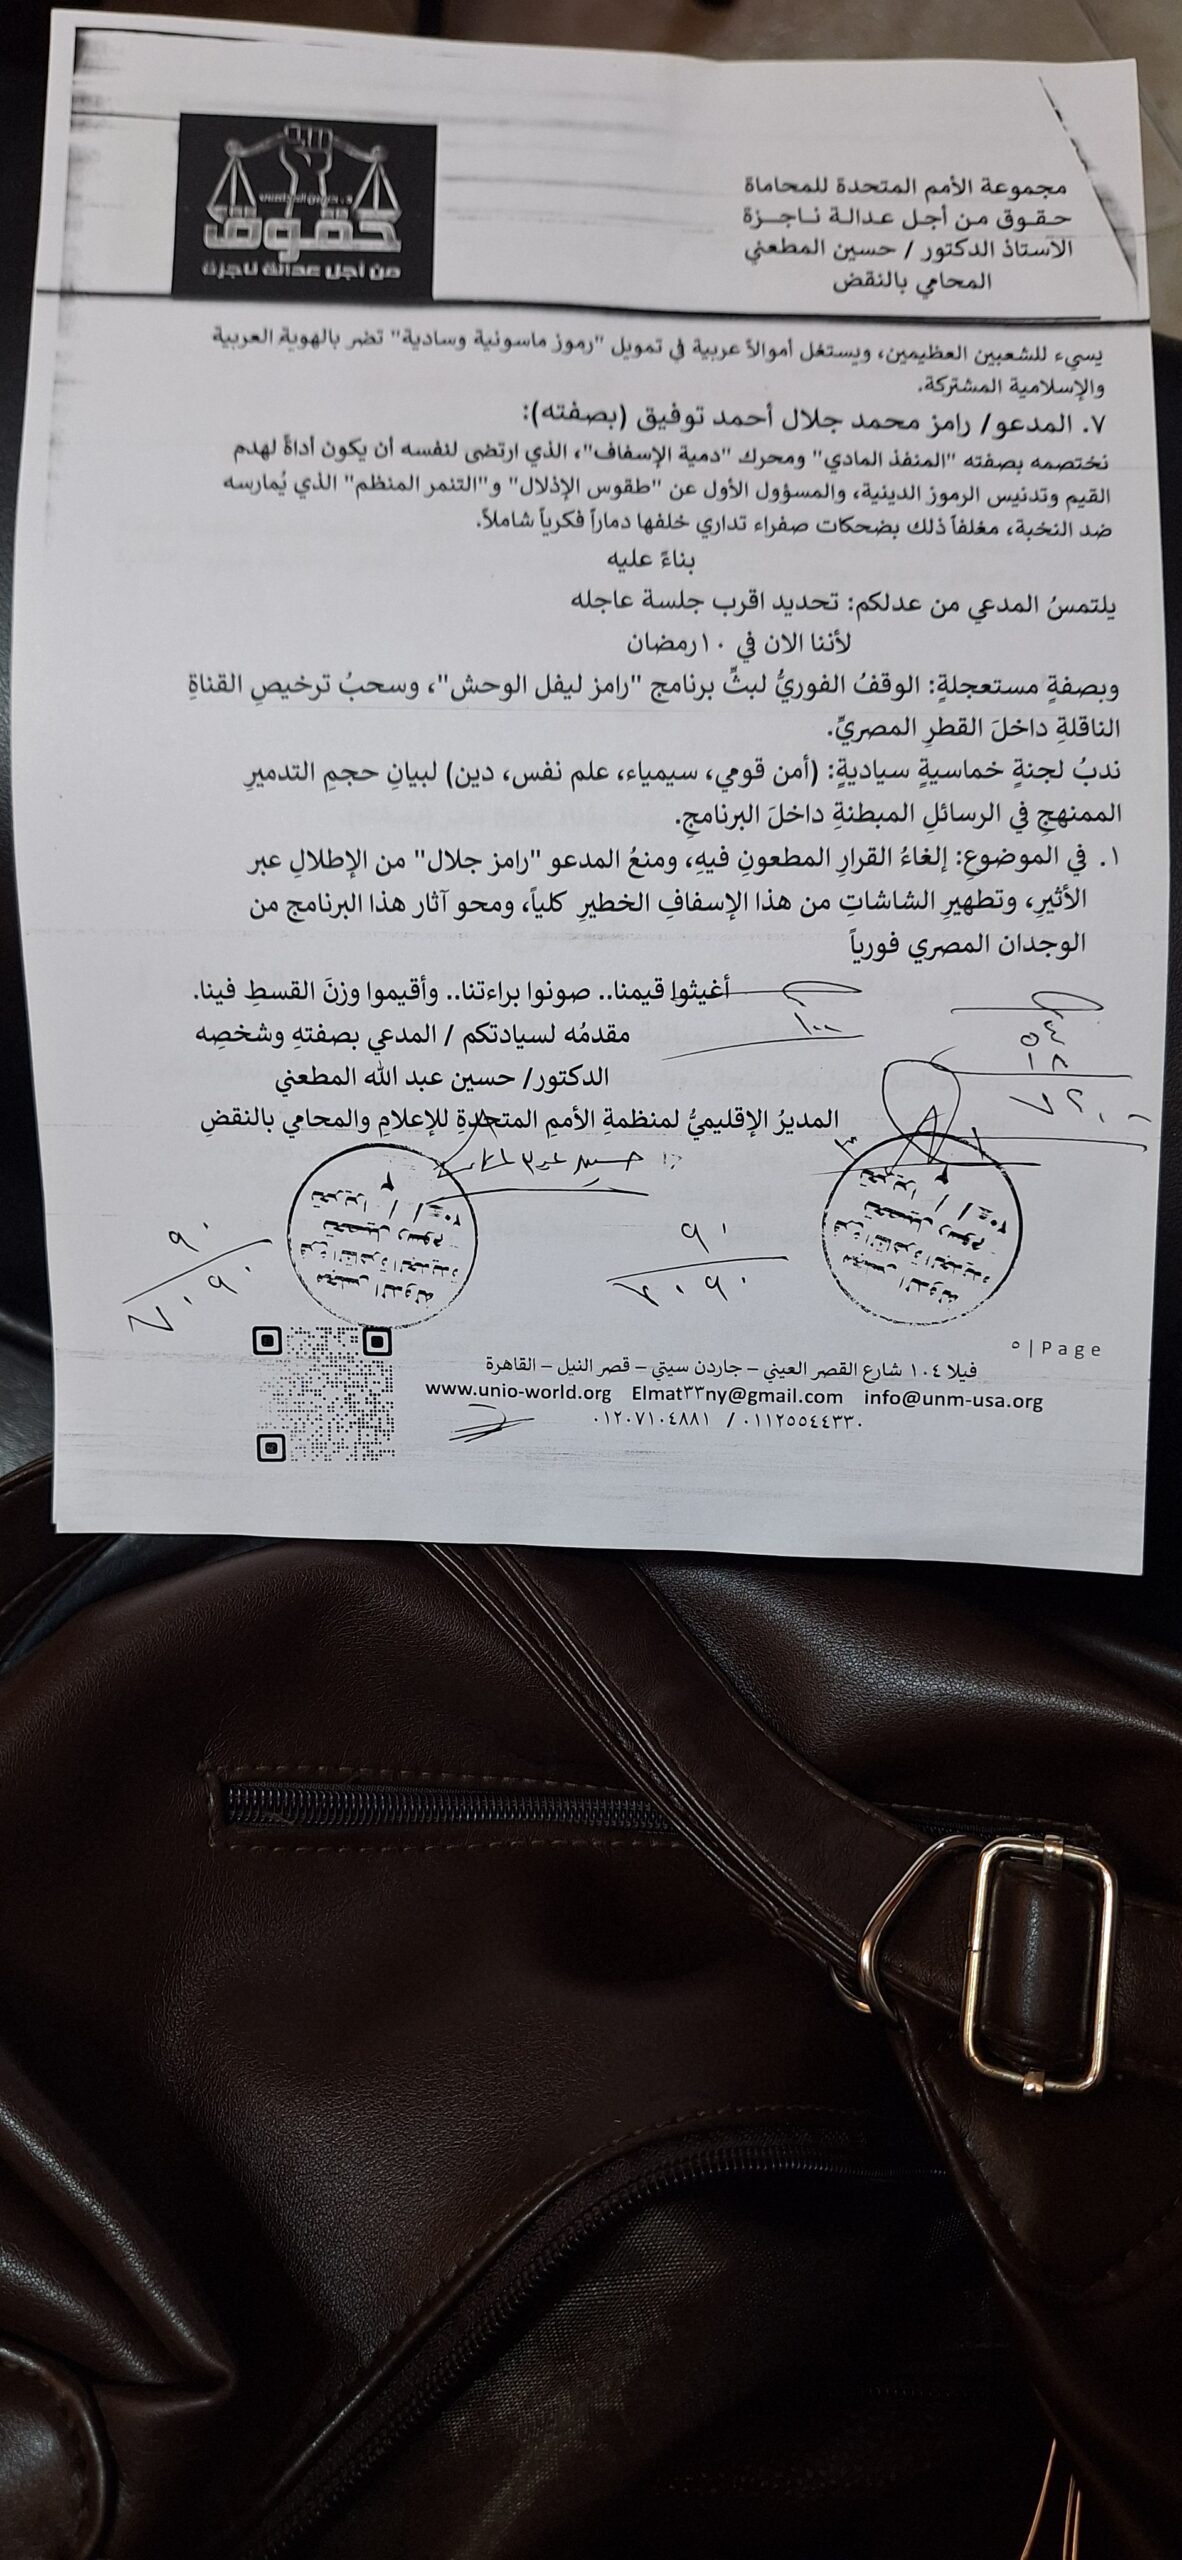 مجموعة الأمم المتحدة للمحاماة
حقوق من أجل عدالة ناجزة
الاستاذ الدكتور / حسين المطعني
المحامي بالنقض
حقوق
من أجل عدالة ناجزة
يسيء للشعبين العظيمين، ويستغل أموالاً عربية في تمويل "رموز ماسونية وسادية" تضر بالهوية العربية
والإسلامية المشتركة.
٧. المدعو/ رامز محمد جلال أحمد توفيق (بصفته):
نختصمه بصفته "المنفذ المادي" ومحرك "دمية الإسفاف"، الذي ارتضى لنفسه أن يكون أداةً لهدم
القيم وتدنيس الرموز الدينية، والمسؤول الأول عن "طقوس الإذلال" و"التنمر المنظم" الذي يُمارسه
ضد النخبة، مغلفاً ذلك بضحكات صفراء تداري خلفها دماراً فكرياً شاملاً.
بناءً عليه
يلتمسُ المدعي من عدلكم: تحديد اقرب جلسة عاجله
لأننا الان في ١٠رمضان
وبصفةٍ مستعجلةٍ: الوقفُ الفوريُّ لبثِّ برنامج "رامز ليفل الوحش"، وسحبُ ترخيصِ القناةِ
الناقلةِ داخلَ القطرِ المصريِّ.
ندبُ لجنةٍ خماسيةٍ سياديةٍ: (أمن قومي، سيمياء، علم نفس، دين) لبيانِ حجمِ التدميرِ
الممنهجِ في الرسائلِ المبطنةِ داخلَ البرنامجِ.
١. في الموضوعِ: إلغاءُ القرارِ المطعونِ فيهِ، ومنعُ المدعو "رامز جلال" من الإطلالِ عبر
الأثيرِ، وتطهيرِ الشاشاتِ من هذا الإسفافِ الخطيرِ كلياً، ومحو آثار هذا البرنامج من
الوجدان المصري فورياً
أغيثوا قيمنا.. صونوا براءتنا.. وأقيموا وزنَ القسطِ فينا.
مقدمُه لسيادتكم / المدعي بصفتهِ وشخصِه
١٠٠
٥٤
١٨
الدكتور/ حسين عبد الله المطعني
المديرُ الإقليميُّ لمنظمةِ الأممِ المتحدةِ للإعلامِ والمحامي بالنقضِ
مجلس الدولة
فرع القاهرة الجديدة
تحصيل رسوم
تحريرا / / ٢٠
مجلس الدولة
فرع القاهرة الجديدة
تحصيل رسوم
تحريرا / / ٢٠
٩٠
٢٠٩٠
٩٠
٧٠٩٠
٥ | Page
فيلا ١٠٤ شارع القصر العيني – جاردن سيتي – قصر النيل – القاهرة
www.unio-world.org Elmat٣٣ny@gmail.com info@unm-usa.org
٠١١٢٥٥٤٤٣٣٠ / ٠١٢٠٧١٠٤٨٨١